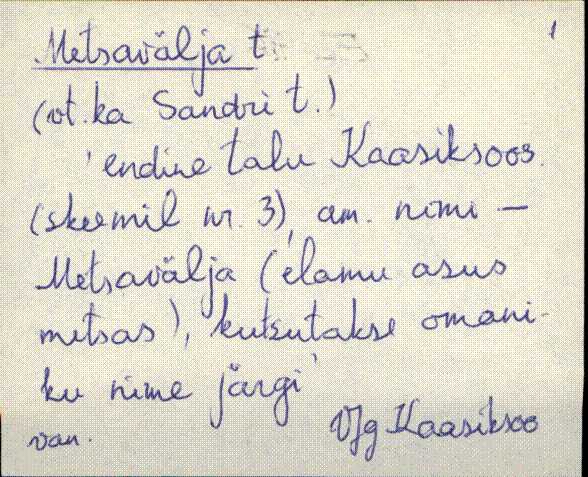 1
Metsavälja t
(vt. ka Sandri t.)
'endine talu Kaasiksoos
(skeemil nr. 3), am. nimi –
Metsavälja (elamu asus
metsas), kutsutakse omani-
ku nime järgi'
van. VJg Kaasiksoo